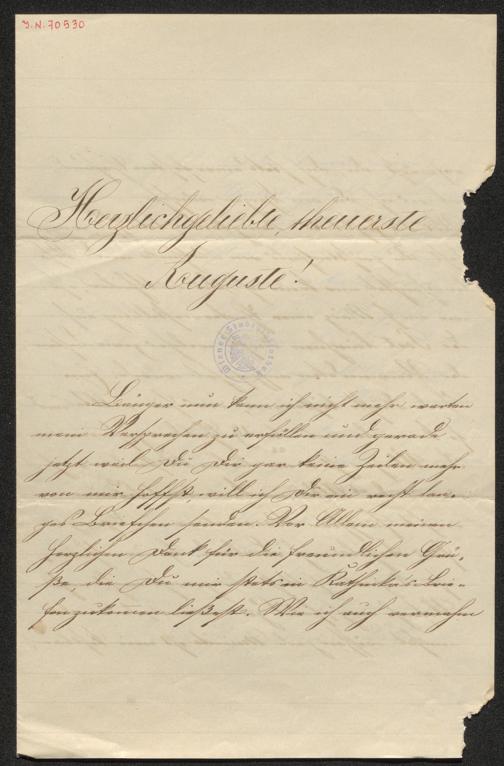 J.N. 70930
Herzlichgeliebte, theuerste
Auguste!
Wiener Stadtbibliothek
Länger nun kann ich nicht mehr warten
mein Versprechen zu erfüllen und gerade
jetzt weil Du Dir gar keine Zeilen mehr
von mir hoffst, will ich Dir ein recht lan-
ges Briefchen senden. Vor Allem meinen
herzlichen Dank für die freundlichen Grü-
ße, die Du mir stets in Kathinka's Brie-
fen zukommen ließest. Wie ich auch vernahm